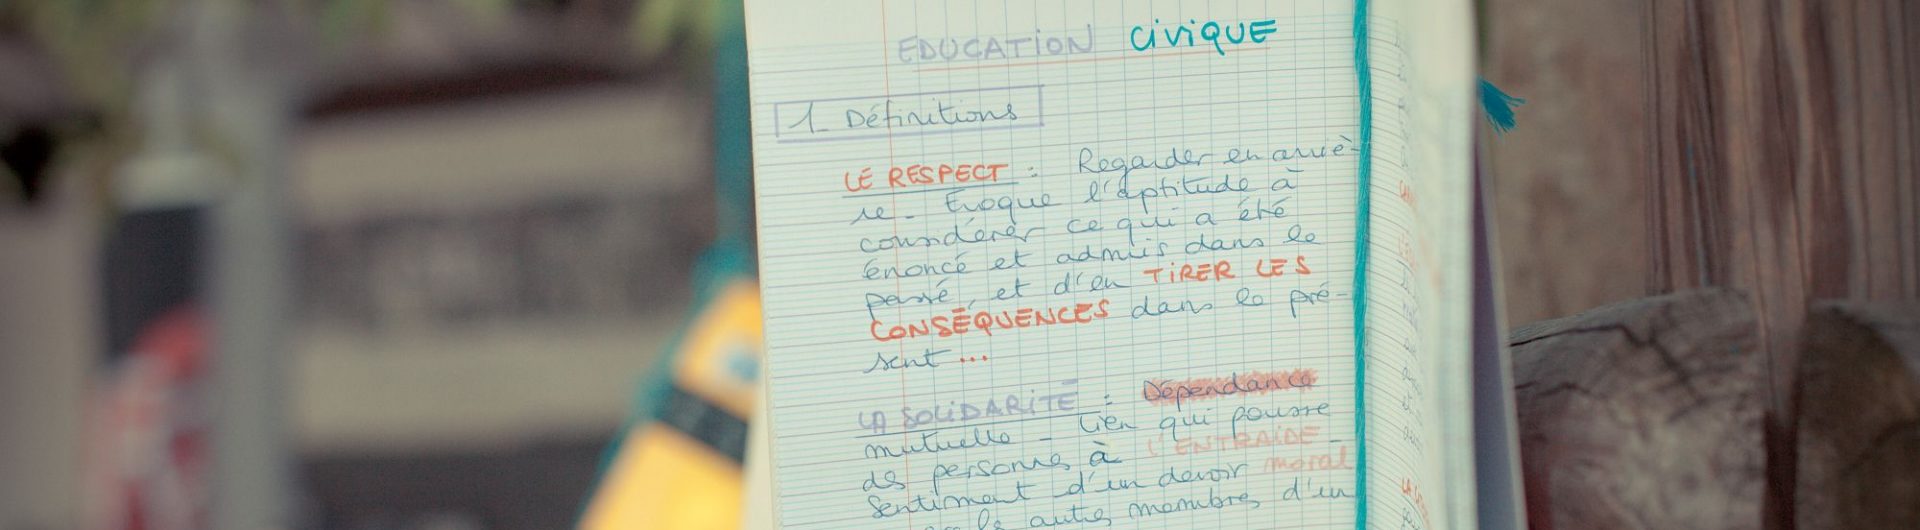 EDUCATION CIVIQUE
1_ Définitions
LE RESPECT : Regarder en arriè-
re_ Evoque l'aptitude à
considérer ce qui a été
énoncé et admis dans le
passé, et d'en TIRER LES
CONSÉQUENCES dans le pré-
sent ...
LA SOLIDARITÉ : Dépendance
mutuelle _ Lien qui pousse
des personnes à L'ENTRAIDE_
Sentiment d'un devoir moral
les autres membres d'un